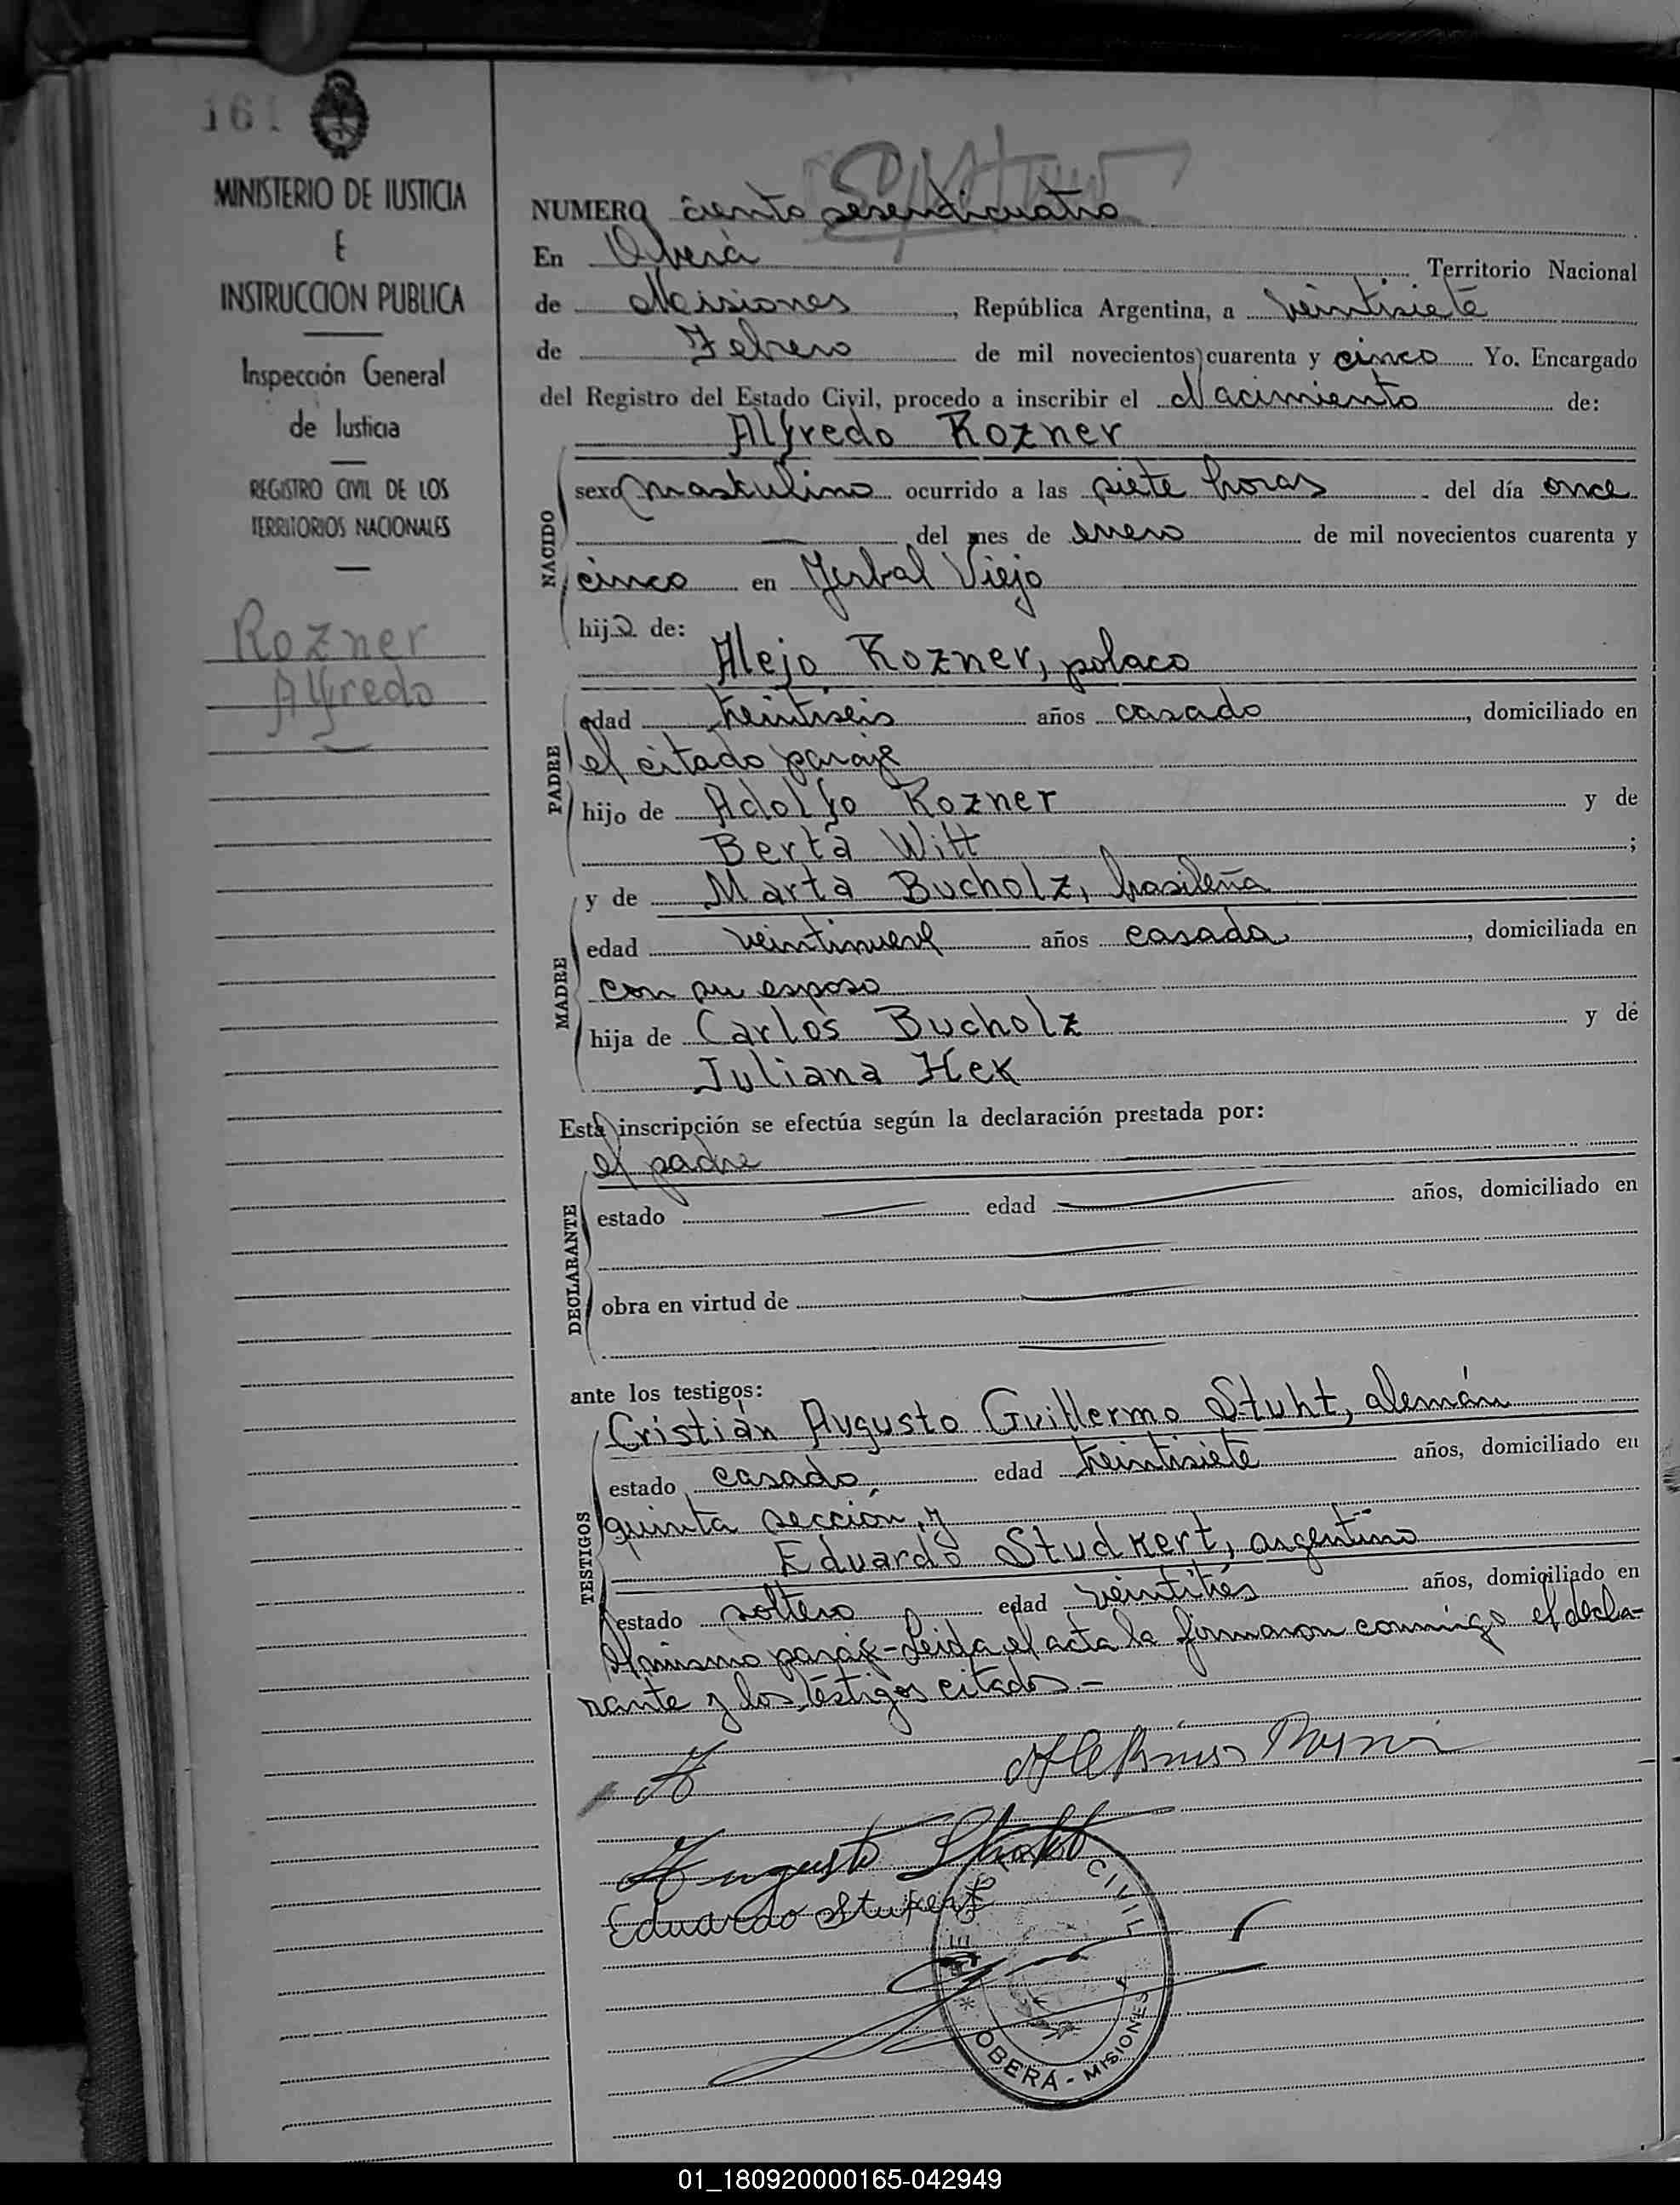 161
MINISTERIO DE JUSTICIA
E
INSTRUCCION PUBLICA
Inspección General
de Justicia
REGISTRO CIVIL DE LOS
TERRITORIOS NACIONALES
Rozner
Alfredo
NUMERO ciento sesenticuatro
En Oberá Territorio Nacional
de Misiones, República Argentina, a veintisiete
de Febrero de mil novecientos cuarenta y cinco Yo. Encargado
del Registro del Estado Civil, procedo a inscribir el Nacimiento de:
Alfredo Rozner
NACIDO
sexo maskulino ocurrido a las siete horas del día once
del mes de enero de mil novecientos cuarenta y
cinco en Yerbal Viejo
hijo de:
Alejo Rozner, polaco
PADRE
edad treintiseis años casado, domiciliado en
el citado paraje
hijo de Adolfo Rozner y de
Berta Witt;
y de Marta Bucholz, brasileña
MADRE
edad veintinueve años casada, domiciliada en
con su esposo
hija de Carlos Bucholz y de
Juliana Hek
Esta inscripción se efectúa según la declaración prestada por:
el padre
DECLARANTE
estado edad años, domiciliado en
obra en virtud de
ante los testigos:
Cristián Augusto Guillermo Stuht, alemán
TESTIGOS
estado casado edad treintisiete años, domiciliado en
quinta sección, y
Eduardo Studkert, argentino
estado soltero edad veintitrés años, domiciliado en
el mismo paraje-Leida el acta la firmaron conmigo el decla-
rante y los testigos citados.-
A
Augusto
Eduardo Stukert
CIVIL
OBERÁ - MISIONES
01_180920000165-042949